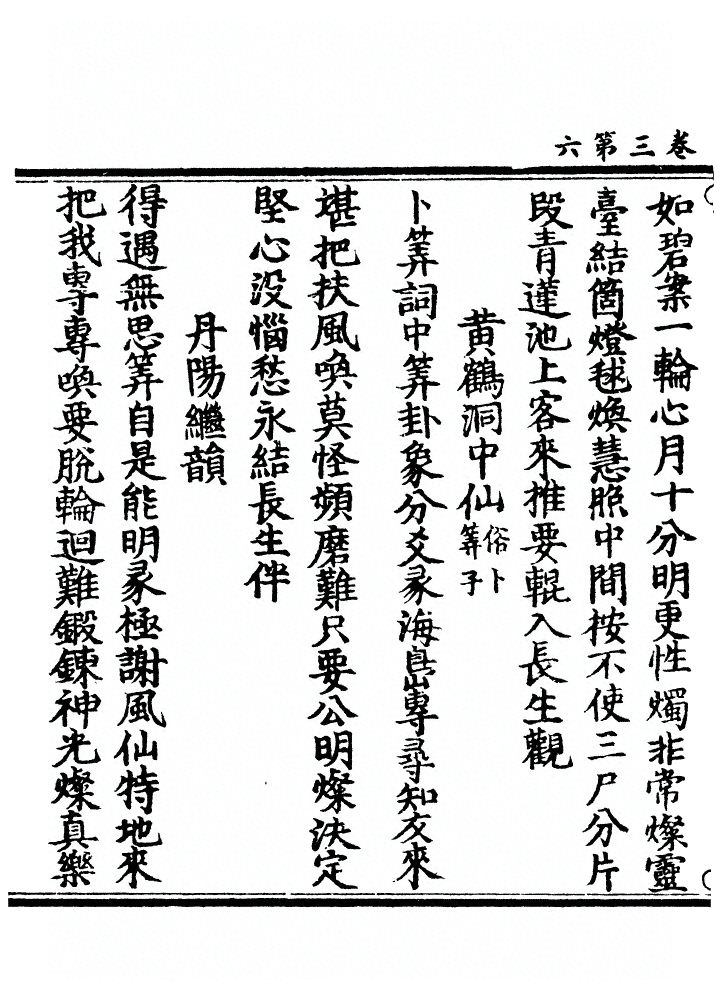 卷三第六
如碧案一輪心月十分明更性燭非常燦靈
臺結箇燈毬煥慧照中間桉不使三尸分片
段青蓮池上客來推要輥入長生觀
黄鶴洞中仙俗卜筭子
卜筭詞中筭卦象分爻彖海島專尋知友來
堪把扶風喚莫怪頻磨難只要公明燦決定
堅心没惱愁永結長生伴
丹陽繼韻
得遇無思筭自是能明彖極謝風仙特地來
把我専専喚要脫輪迴難鍛鍊神光燦真樂